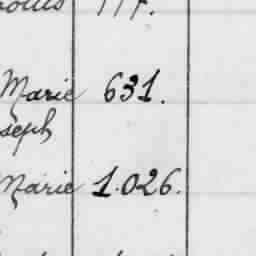 Marie 631.
seph
Marie 1.026.